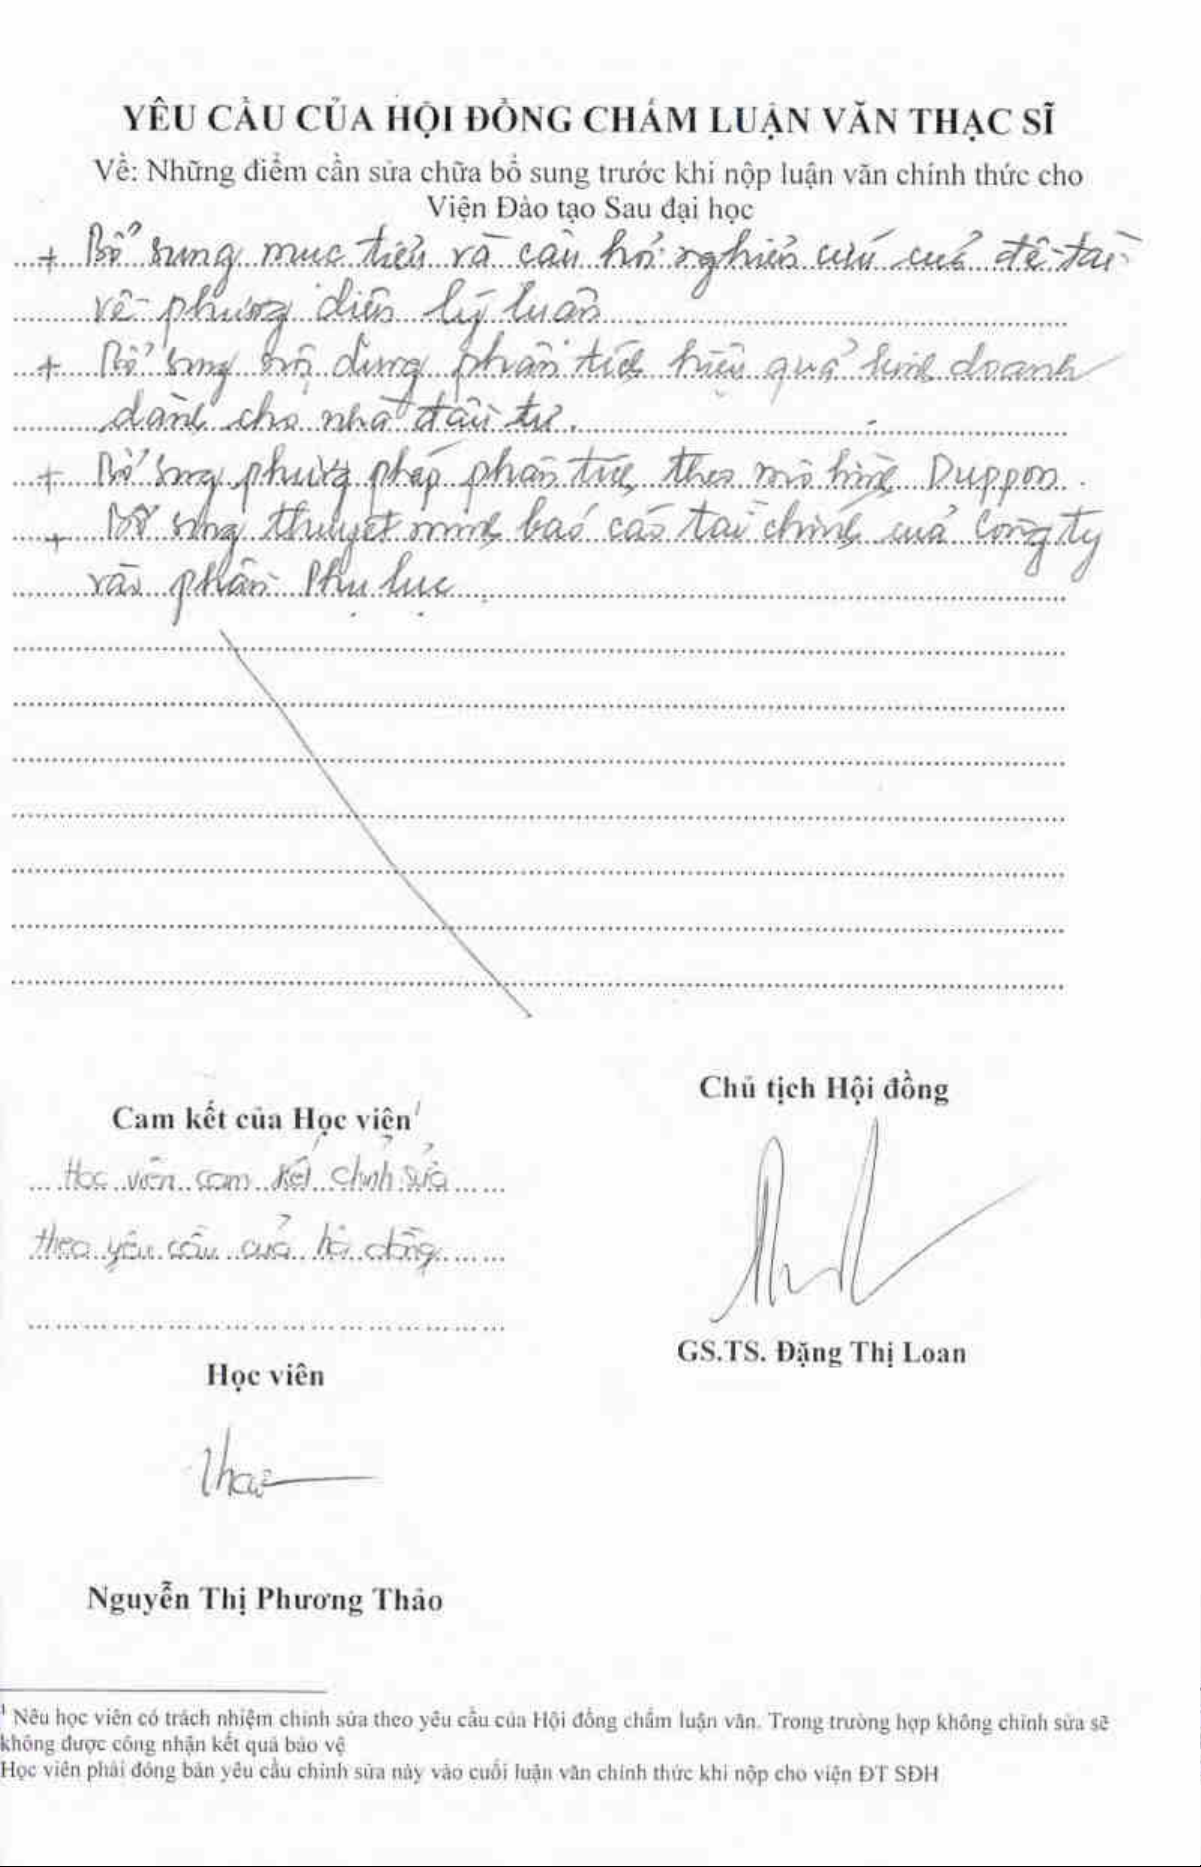 YÊU CẦU CỦA HỘI ĐỒNG CHẤM LUẬN VĂN THẠC SĨ
Về: Những điểm cần sửa chữa bổ sung trước khi nộp luận văn chính thức cho
Viện Đào tạo Sau đại học
+ Bổ sung mục tiêu và câu hỏi nghiên cứu của đề tài
về phương diện lý luận
+ Bổ sung nội dung phân tích hiệu quả kinh doanh
dành cho nhà đầu tư.
+ Bổ sung phương pháp phân tích theo mô hình Duppon.
+ Bổ sung thuyết minh báo cáo tài chính của Công ty
vào phần Phụ lục
Chủ tịch Hội đồng
Cam kết của Học viên¹
Học viên cam kết chỉnh sửa
theo yêu cầu của hội đồng
GS.TS. Đặng Thị Loan
Học viên
Thảo
Nguyễn Thị Phương Thảo
¹ Nêu học viên có trách nhiệm chỉnh sửa theo yêu cầu của Hội đồng chấm luận văn. Trong trường hợp không chỉnh sửa sẽ
không được công nhận kết quả bảo vệ
Học viên phải đóng bản yêu cầu chỉnh sửa này vào cuối luận văn chính thức khi nộp cho viện ĐT SĐH